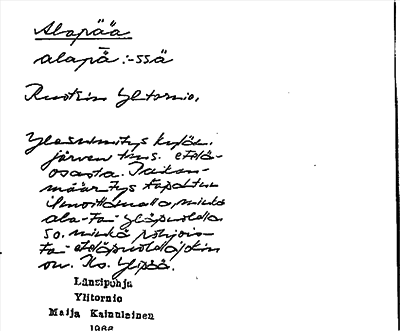 Alapää
alapǟ :-ssä
Ruotsin Ylitornio,
Yleisnimitys kylän,
järven tms. etelä-
osasta. Paikan-
määritys tapahtuu
ilmoittamalla, minkä
ala- ta- yläpuolella
so. minkä pohjois-
ta- eteläpuolella jokin
on. Ks. Ylipää.
Länsipohja
Ylitornio
Maija Kainulainen
1968